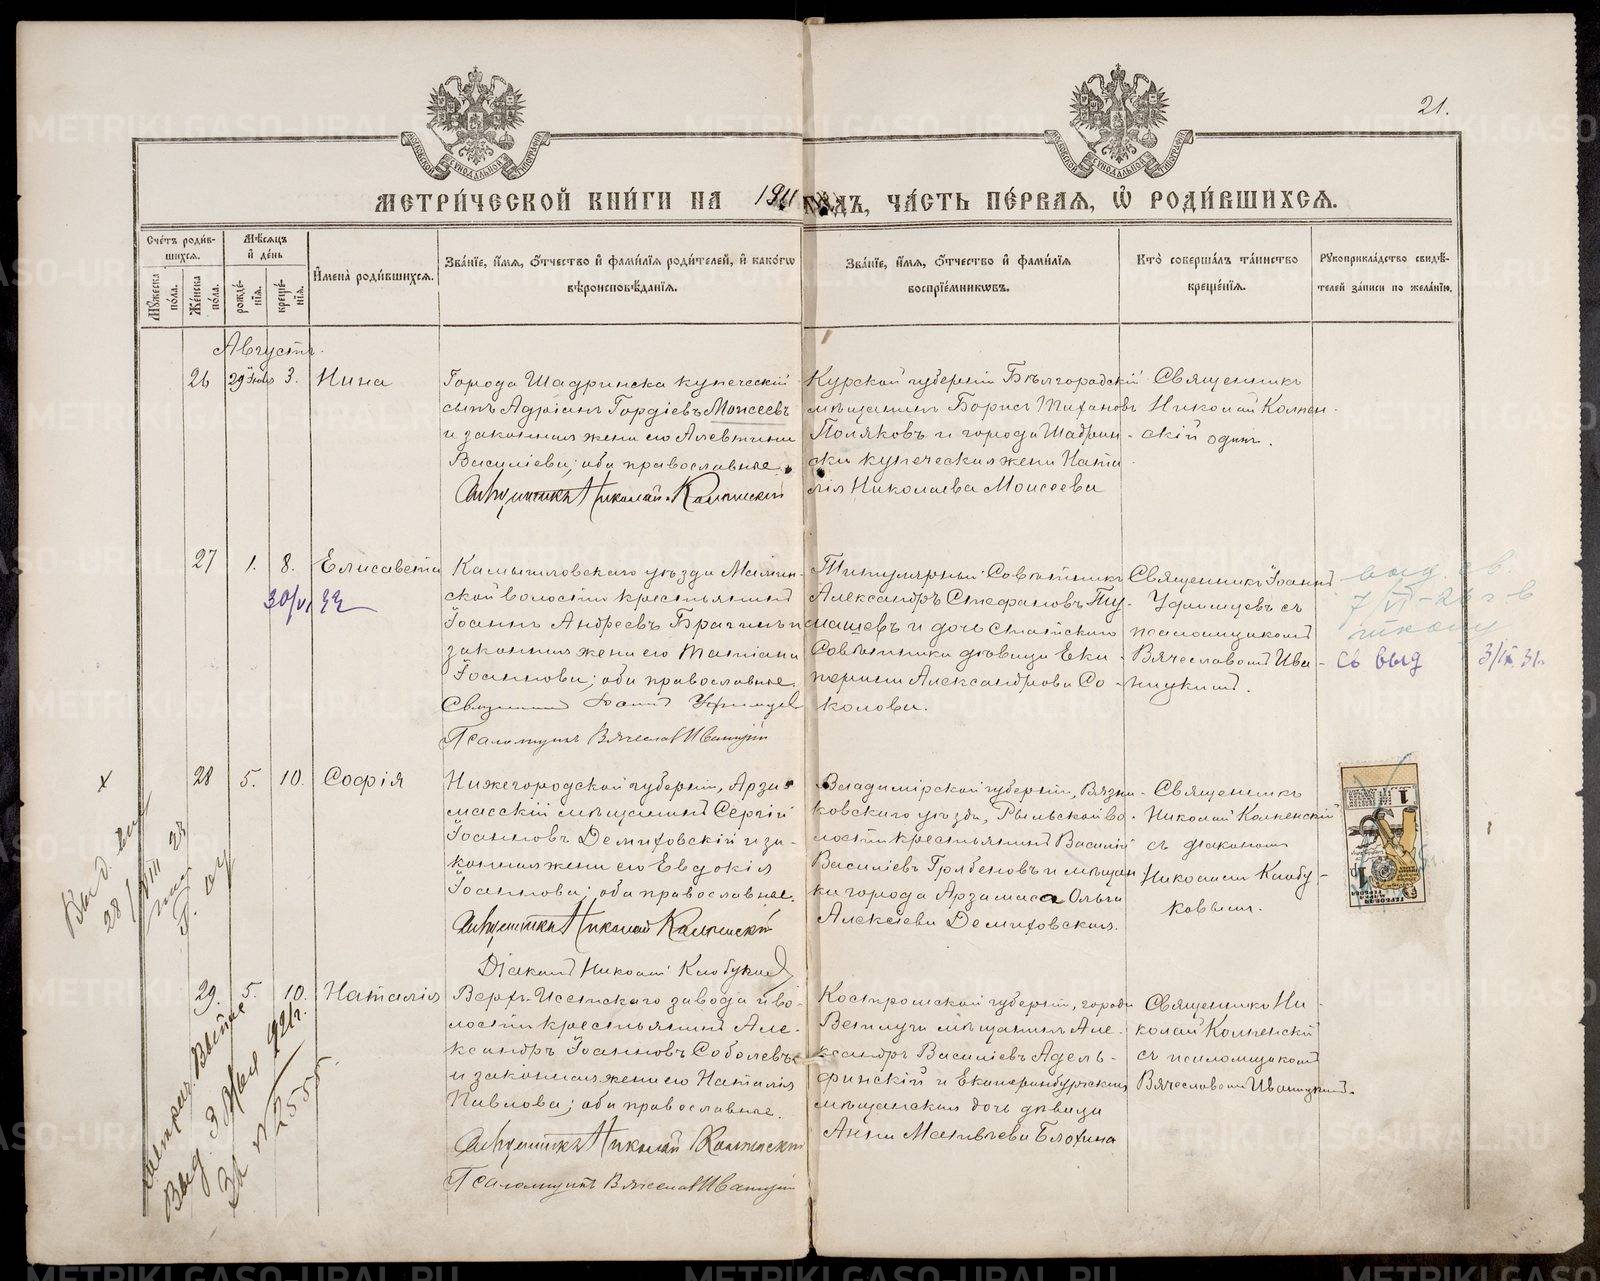 21.
МЕТРИ́ЧЕСКОЙ КНИ́ГИ НА 1911 ГОДЪ, ЧА́СТЬ ПЕ́РВАЯ, Ѡ РОДИ́ВШИХСЯ.
Сче́тъ роди́в-
шихся.
Мꙋ́жеска по́ла.
Же́нска по́ла.
Мѣ́сяцъ
и҆ де́нь
рожде́-
нїя.
креще́-
нїя.
И҆мена̀ роди́вшихся.
Зва́нїе, и҆́мя, ѻ҆́тчество и҆ фамѝлїя роди́телей, и҆ како́гѡ
вѣроисповѣ́данїя.
Зва́нїе, и҆́мя, ѻ҆́тчество и҆ фамѝлїя
воспрїе́мникѡвъ.
Кто̀ соверша́лъ та́инство
креще́нїя.
Рꙋкоприкла́дство свидѣ́-
телей за́писи по жела́нїю.
Августъ.
26 29 Іюля 3. Нина
Города Шадринска купеческій
сынъ Адріанъ Гордіевъ Моисеевъ
и законная жена его Алевтина
Василіева; оба православные.
Священникъ Николай Колпенскій
Курской губерніи Бѣлгородскій
мѣщанинъ Борисъ Тихановъ
Поляковъ и города Шадрин-
ска купеческая жена Ната
лія Николаева Моисеева
Священникъ
Николай Колпен-
скій одинъ.
27 1. 8. Елисавета
30/VI 33
Камышловскаго уѣзда
ской волости крестьянинъ
Іоаннъ Андреевъ Брагинъ и
законная жена его Татіана
Іоаннова; оба православные.
Священникъ Іоаннъ Уфимцев
Псаломщикъ Вячеслав Иваницкій
Титулярный Совѣтникъ
Александръ Стефановъ Ту-
машевъ и дочь Статскаго
Совѣтника дѣвица Ека-
терина Александрова Со-
колова.
Священникъ Іоаннъ
Уфимцевъ съ
псаломщикомъ
Вячеславомъ Ива-
ницкимъ.
выд. св.
7/VI-26 г в
школу
св выд 3/IX 31.
28 5. 10. Софія
х
Нижегородской губерніи, Арза-
масскій мѣщанинъ Сергій
Іоанновъ Демитовскій и за-
конная жена его Евдокія
Іоаннова; оба православные.
Священникъ Николай Колпенскій
Діаконъ Николай Клобуков
Владимірской губерніи, Вязни-
ковскаго уѣзда, Рыльской во-
лости крестьянинъ Василій
Василіевъ Грябеновъ и мѣщан-
ка города Арзамаса Ольга
Алексіева Демитовская.
Священникъ
Николай Колпенскій
съ діакономъ
Николаемъ Клобу-
ковымъ.
29. 5. 10. Наталія
Верхъ-Исетскаго завода и во-
лости крестьянинъ Але-
ксандръ Іоанновъ Соболевъ
и законная жена его Наталія
Павлова; оба православные.
Священникъ Николай Колпенскій
Псаломщикъ Вячеслав Иваницкій
Костромской губерніи, города
Ветлуги мѣщанинъ Але-
ксандръ Василіевъ Адель-
финскій и Екатеринбургская
мѣщанская дочь дѣвица
Анна Матвѣева Блохина
Священникъ Ни-
колай Колпенскій
съ псаломщикомъ
Вячеславомъ Иваницкимъ.
Выд.
28/VIII 23
Выд. 3 1921 г.
За № 2555
METRIKI.GASO-URAL.RU